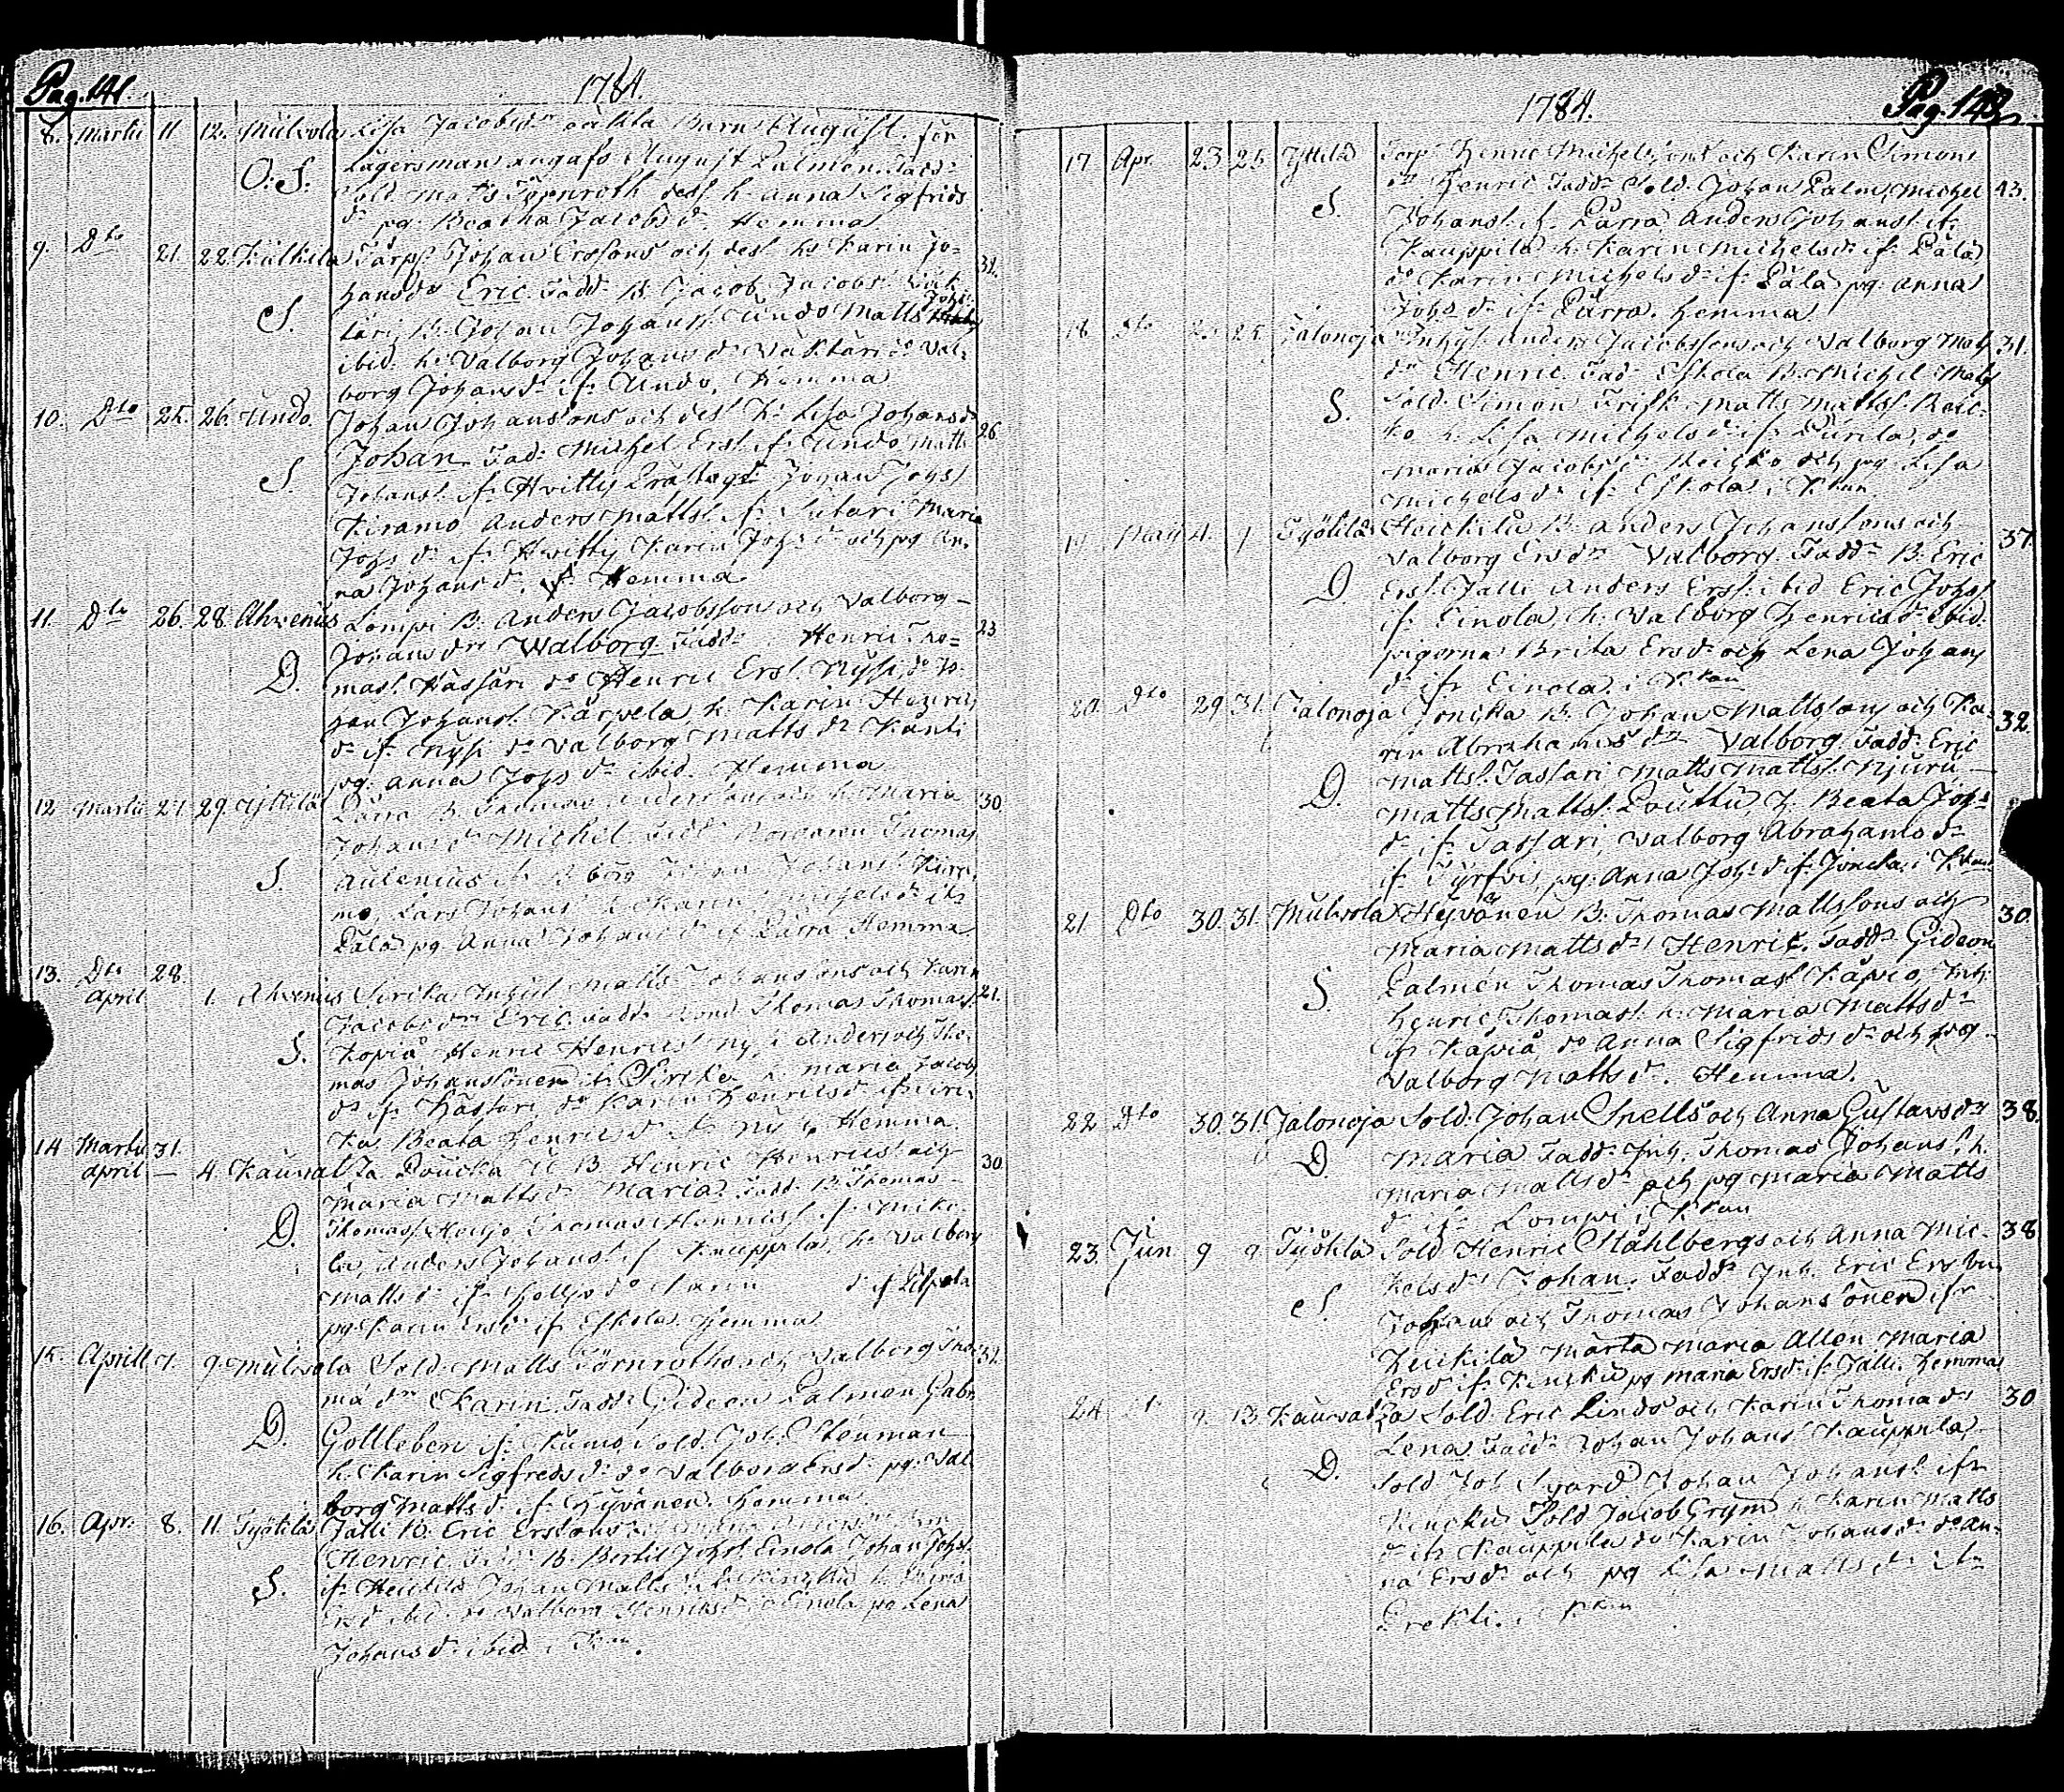 Pag. 141.
1784.
8. Martii 11 12. Mulvola Lisa Jacobsdr oäkta Barn August. för
Lägersman angafs August Palmén. Fadd:
O. S. Sold. Matts Törnroth dess h. Anna Sigfrids
dr pg. Beatha Jacobs dr Hemma
9. Dto 21. 22. Kulkila Torps Johan Erssons och dess h: Karin Jo- 32.
hansdr Eric. Fadd. B. Jacob Jacobs:
S. täri B. Johan Johanss. Undo Matts
ibid. h. Valborg Johans dr Väktäri do Val-
borg Johans dr if. Undo. Hemma
10. Dto 25. 26. Undo. Johan Johanssons och dess h: Lisa Johans dr 26.
Johan Fad: Michel Erss. if: Undo Matts
S. Johanss. if. Hvittis Johan Johss
Kiramo Anders Mattss. if. Sutari Maria
Johs dr if. Hvittis Karin Johs dr och pg An-
na Johans dr. if. Hemma
11. Dto 26. 28. Ahvenus Lompi B. Anders Jacobssons och Valborg 23
Johans dr Walborg Fadd: Henric Tho-
D. mass. Hassari do Henric Erss. Nysi, do Jo-
han Johanss. Kärpelä, h. Karin Henrics
dr if. Nysi do Valborg Matts dr Kanti
pg. Anna Johs dr ibid. Hemma
12 Martii 27. 29. Yttilä Pärra B. Thomas Anderssons och h. Maria 30.
Johans dr Michel. Fadd: Borgaren Thomas
S. Aulenius if. B:borg Johan Johanss. Kira-
mo, Lars Johanss. h. Karin Michels dr ifr
Pälä pg Anna Johans dr if Pärra Hemma
13. Dto 28.
April 1. Ahvenus Sirika Inhys Matts Johanssons och Karin 21.
Jacobs dr Eric. Fadd: Bond Thomas Thomass.
S. Kopiä Henric Henricss. Anders och Tho-
mas Johanssöner if: Sirika h. Maria Jacobs
dr if. Hassari, do Karin Henricsdr if Siri-
ka Beata Henrics dr if: Hemma.
14 Martii 31.
April — 4. Kauvatza Poucka B. Henric Henricss: och 30
Maria Matts dr Maria. Fadd: B. Thomas
D. Thomass. Thomas Hannuss. if.
la, Anders Johanss. if Kauppila, h. Valborg
Matts dr if. do Karin dr if Pispala
pg Karin Ersdr if Eskola. Hemma
15. Aprill 7. 9. Mulvola Sold. Matts Törnroths och Valborg Tho- 32.
ma dr Karin. Fadd: Gideon Palmén Gabr.
D. Gottleben if: Kumo, Sold. Joh. Stenman
h. Karin Sigfreds dr do Valborg Ersdr pg. Val-
borg Matts dr if. Hyvänen. Hemma
16. Apr. 8. 11. Työtilä Jalli B. Eric Erssons
Henric. Fadd: B. Bertil Johss. Einola Johan Johss.
S. if. Heickilä Johan Matts h. Maria
Ersd ibid do Valborg Henriksdr Einola pg Lena
Johans dr ibid i K:kan.
Pag. 142.
1784.
17 Apr. 23 25 Yttilä Torps Henric Michelssons och Karin Simons
dr Henric Fadd: Sold. Johan Palm, Michel 43.
S. Johanss. if. Pärra, Anders Johanss. if:
Kauppila h. Karin Michelsdr if. Pälä,
do Karin Michels dr if. Pälä pg. Anna
Johs dr if Pärra. Hemma
18 Dto 25. Jalonoja Inhys. Anders Jacobssons och Valborg Mats 31.
dr Henric. Fad: Eskola B. Michel Mats
S. Sold. Simon Frisk. Matts Mattss. Reic-
ko h. Lisa Michels dr if. Purila, do
Maria Jacobs dr Reicko och pg. Lisa
Michels dr if. Eskola i K:kan
19 May 4. 7 Työtilä Heickilä B. Anders Johanssons och 37.
Valborg Ersdr Valborg. Fadd: B. Eric
D Erss. Jalli Anders Erss. ibid Eric Johss
if. Einola, h. Valborg Henricsdr ibid.
pigorna Brita Ersdr och Lena Johans
dr ifr Einola. i K:kan
20. Dto 29 31. Jalonoja Joncka B. Johan Mattssons och Ka- 32.
rin Abrahams dr Valborg. Fadd: Eric
D. Mattss. Tassari Matts Mattss. Njuru
Matts Mattss. Pouttu, h. Beata Johs
dr if. Tassari, Valborg Abrahams dr
if. Tyrfvis, pg. Anna Johs d if. Joncka. i K:kan
21 Dto 30. 31. Mulvola Hyvänen B. Thomas Mattssons och 30.
Maria Matts dr Henric. Fadd: Gideon
S. Palmén Thomas Thomass Käpiä, Inh:
Henric Thomass. h. Maria Matts dr
ifr Käpiä, do Anna Sigfrids dr och pig.
Valborg Matts dr. Hemma.
22 Dto 30. 31. Jalonoja Sold. Johan Snells och Anna Gustavs dr 38.
D Maria Fadd: Inh. Thomas Johanss. h.
Maria Matts dr och pg Maria Matts
dr ifr Lompi i K:kan
23. Jun 9 9. Työtilä Sold Henric Ståhlbergs och Anna Mic- 38
kels dr Johan. Fadd: Inh. Eric Ers
S. Johans och Thomas Johanssöner ifr
Heickilä Märta Maria Allén Maria
Ersd if. pg Maria Ersdr if. Jalli. Hemma
24 Dto 9. 13. Kauvatza Sold Eric Linds och Karin Thoma dr 30
Lena. Fadd: Johan Johans Kauppila
D. Sold Joh Svärd Johan Johanss. ifr
Sold Jacob Grym h Karin Matts
dr ifr Kauppila do Karin Johans dr do An-
na Ersdr och pg Lisa Matts dr ifr
Prekti. i K:kan